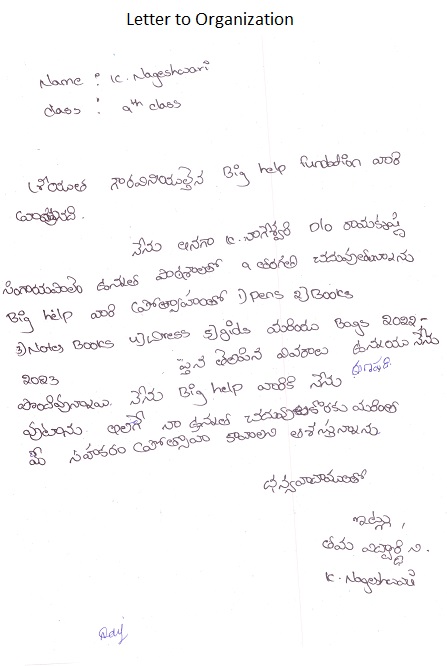 Letter to Organization
Name : K. Nageshwari
class : 9th class
శ్రీయుత గౌరవనీయులైన Big help fundation వారి
నేను అనగా K. నాగేశ్వరి D/o రామకృష్ణ
ఉన్నత పాఠశాలలో 9 తరగతి చదువుతున్నాను
Big help వారి ప్రోత్సాహంతో 1) pens 2) Books
3) Notes Books 4) Dress 5) మరియు Bags 2022-
2023 పైన తెలిపిన వివరాలు నేను
పొందివున్నాను. నేను Big help వారికి నేను
వుంటాను. అలాగే నా ఉన్నత చదువుల కొరకు మరింత
మీ సహకారం ప్రోత్సాహం కావాలని ఆశిస్తున్నాను
ధన్యవాదములతో
ఇట్లు,
తమ విద్యార్థిని.
K. Nageshwari